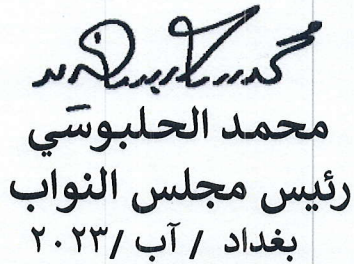 محمد الحلبوسي
رئيس مجلس النواب
بغداد / آب /٢٠٢٣